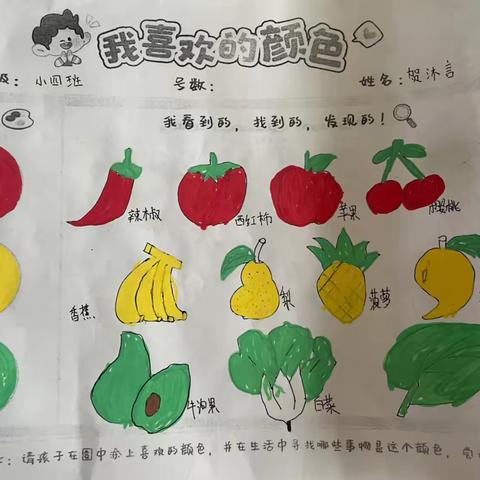 我喜欢的颜色
级：小四班 号数： 姓名：贺沐言
我看到的，找到的，发现的！
辣椒 西红柿 苹果 樱桃
香蕉 梨 菠萝
牛油果 白菜
：请孩子在圆中涂上喜欢的颜色，并在生活中寻找哪些事物是这个颜色，